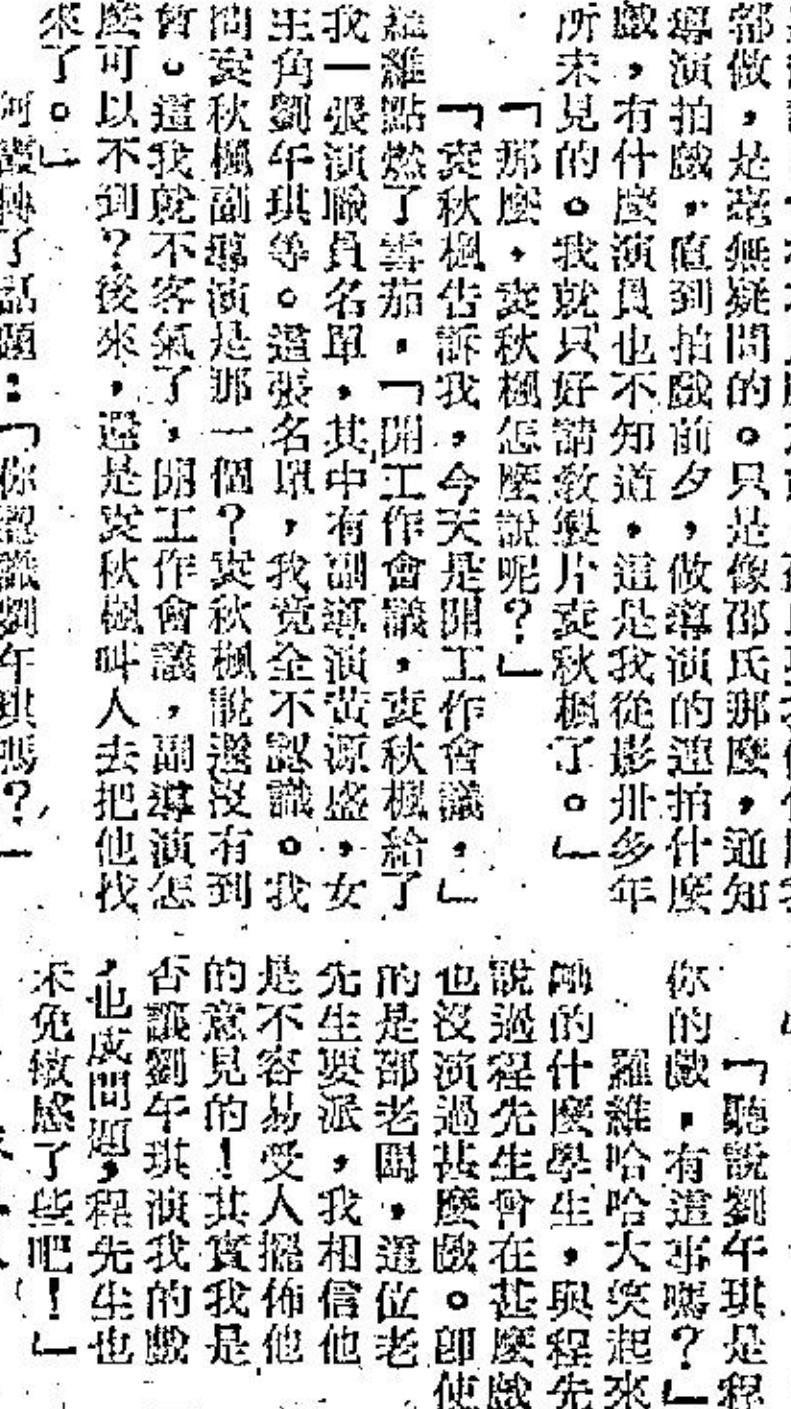 部做,是毫無疑問的。只是像邵氏那麼,通知
導演拍戲,直到拍戲前夕,做導演的連拍什麼
戲,有什麼演員也不知道,這是我從影卅多年
所未見的。我就只好請敎製片袁秋楓了。」
「那麼,袁秋楓怎麼說呢?」
「袁秋楓告訴我,今天是開工作會議,」
羅維點燃了雪茄,「開工作會議,袁秋楓給了
我一張演職員名單,其中有副導演黃源盛,女
主角劉午琪等。這張名單,我竟全不認識。我
問袁秋楓副導演是那一個?袁秋楓說還沒有到
會。這我就不客氣了,開工作會議,副導演怎
麼可以不到?後來,還是袁秋楓叫人去把他找
來了。」
轉了話題:「你認識劉午琪嗎?」
「聽說劉午琪是程
你的戲,有這事嗎?」
羅維哈哈大笑起來
的什麼學生,與程先
說過程先生曾在甚麼戲
也沒演過甚麼戲。卽使
的是邵老闆,這位老
先生要派,我相信他
是不容易受人擺佈他
的意見的!其實我是
否讓劉午琪演我的戲
,也成問題,程先生也
未免敏感了些吧!」